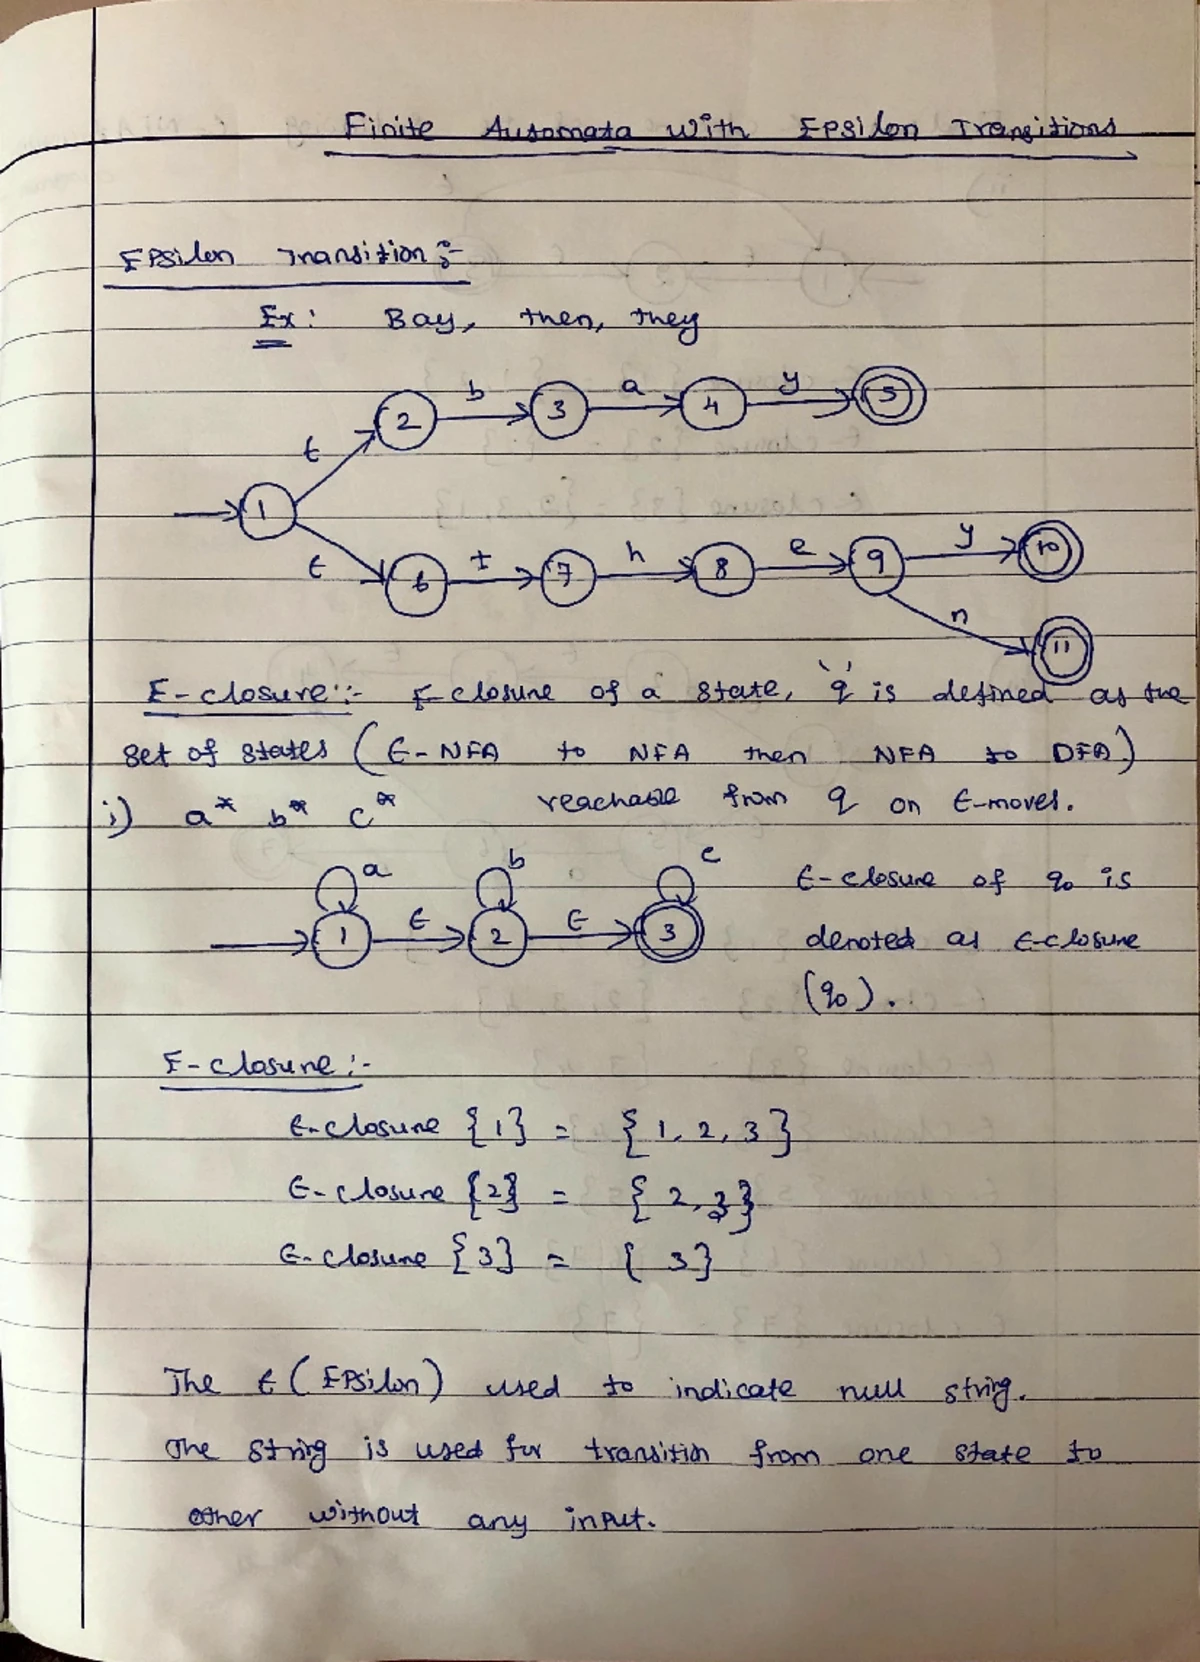 Finite Automata with Epsilon Transitions
Epsilon Transition :-
Ex : Bay, then, they
b a y
2 3 4 5
ϵ
1
ϵ t h e y
6 7 8 9 10
n
11
E-closure :- E closure of a state, 'q' is defined as the
set of states ( ϵ-NFA to NFA then NFA to DFA )
i) a* b* c* reachable from q on ϵ-moves.
a b c
ϵ ϵ
1 2 3
ϵ-closure of q0 is
denoted as ϵ-closure
(q0).
E-closure :-
ϵ-closure {1} = {1, 2, 3}
ϵ-closure {2} = {2, 3}
ϵ-closure {3} = {3}
The ϵ (Epsilon) used to indicate null string.
The string is used for transition from one state to
other without any input.